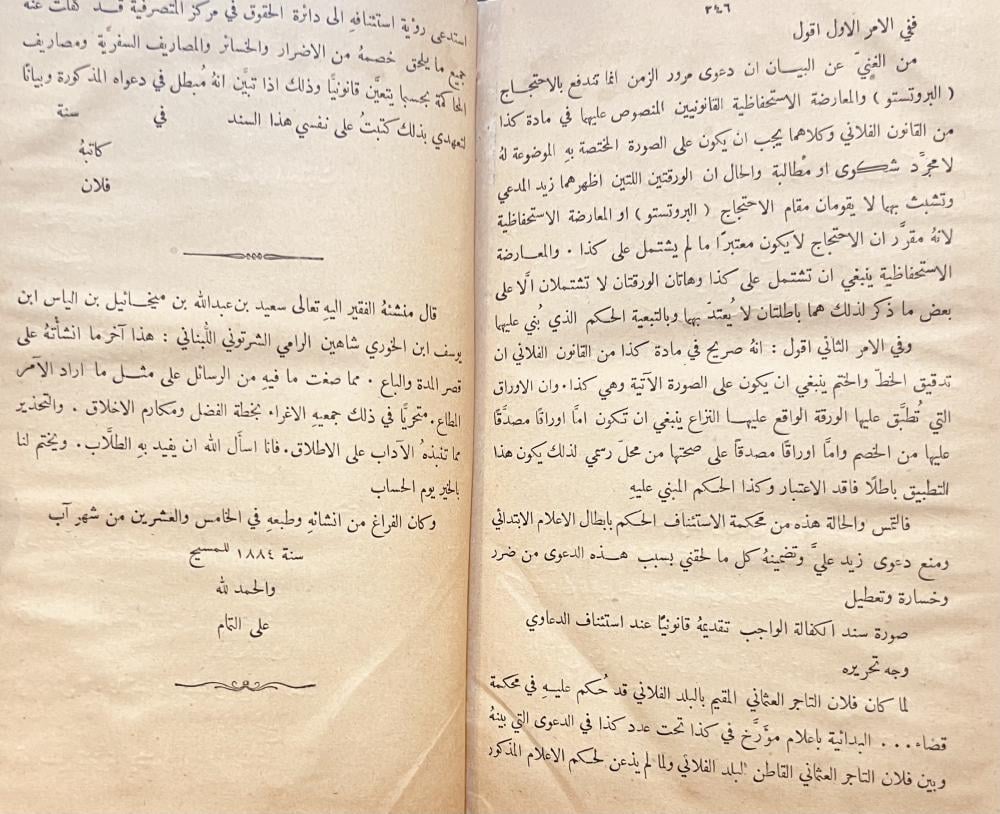 ٣٤٦
ففي الامر الاول اقول
من الغنيّ عن البيان ان دعوى مرور الزمن انما تندفع بالاحتجاج
( البروتستو ) والمعارضة الاستحفاظية القانونيين المنصوص عليها في مادة كذا
من القانون الفلاني وكلاهما يجب ان يكون على الصورة المختصة بهِ الموضوعة لهُ
لا مجرَّد شكوى او مطالبة والحال ان الورقتين اللتين اظهرهما زيد المدعي
وتشبث بهما لا يقومان مقام الاحتجاج ( البروتستو ) او المعارضة الاستحفاظية
لانهُ مقرَّر ان الاحتجاج لا يكون معتبرًا ما لم يشتمل على كذا . والمعارضة
الاستحفاظية ينبغي ان تشتمل على كذا وهاتان الورقتان لا تشتملان الَّا على
بعض ما ذكر لذلك هما باطلتان لا يُعتدّ بها وبالتبعية الحكم الذي بُني عليها
وفي الامر الثاني اقول : انهُ صريح في مادة كذا من القانون الفلاني ان
تدقيق الخطّ والختم ينبغي ان يكون على الصورة الآتية وهي كذا . وان الاوراق
التي تُطبَّق عليها الورقة الواقع عليها النزاع ينبغي ان تكون امَّا اوراقًا مصدقًا
عليها من الخصم وامَّا اوراقًا مصدقًا على صحتها من محلّ رسمي لذلك يكون هذا
التطبيق باطلًا فاقد الاعتبار وكذا الحكم المبني عليهِ
فالتمس والحالة هذه من محكمة الاستئناف الحكم بابطال الاعلام الابتدائي
ومنع دعوى زيد عليَّ وتضمينهُ كل ما لحقني بسبب هذه الدعوى من ضرر
وخسارة وتعطيل
صورة سند الكفالة الواجب تقديمهُ قانونيًا عند استئناف الدعاوي
وجه تحريره
لما كان فلان التاجر العثماني المقيم بالبلد الفلاني قد حُكم عليهِ في محكمة
قضاء . . . البدائية باعلام مؤَرَّخ في كذا تحت عدد كذا في الدعوى التي بينهُ
وبين فلان التاجر العثماني القاطن البلد الفلاني ولما لم يذعن لحكم الاعلام المذكور
استدعى رؤية استئنافهِ الى دائرة الحقوق في مركز المتصرفية قد كفلت عنه
جميع ما يلحق خصمهُ من الاضرار والخسائر والمصاريف السفريَّة ومصاريف
المحاكمة بحسبما يتعيَّن قانونيًّا وذلك اذا تبيَّن انهُ مُبطل في دعواه المذكورة وبيانًا
لتعهدي بذلك كتبتُ على نفسي هذا السند في سنة
كاتبهُ
فلان
قال منشئهُ الفقير اليهِ تعالى سعيد بن عبدالله بن ميخائيل بن الياس ابن
يوسف ابن الخوري شاهين الرامي الشرتوني اللُّبناني : هذا آخر ما انشأْتهُ على
قصر المدة والباع . مما صغت ما فيهِ من الرسائل على مثل ما اراد الآمر
المطاع . متحرّيًا في ذلك جمعيهِ الاغراء بخطة الفضل ومكارم الاخلاق . والتحذير
مما تنبذهُ الآداب على الاطلاق . فانا اسأَل الله ان يفيد بهِ الطلَّاب . ويختم لنا
بالخير يوم الحساب
وكان الفراغ من انشائهِ وطبعهِ في الخامس والعشرين من شهر آب
سنة ١٨٨٤ للمسيح
والحمد لله
على التمام